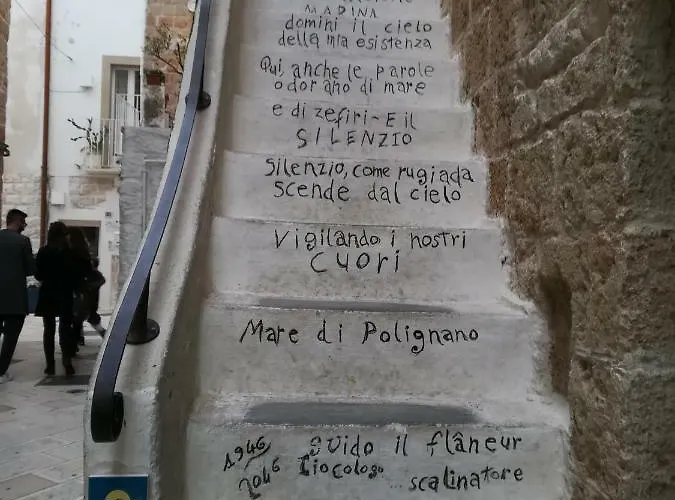 MADINA
domini il cielo
della mia esistenza
Qui, anche le parole
odorano di mare
e di zefiri - E il
SILENZIO
Silenzio, come rugiada
scende dal cielo
Vigilando i nostri
cuori
Mare di Polignano
1946 guido il flâneur
2046 Ciocologo ... scalinatore